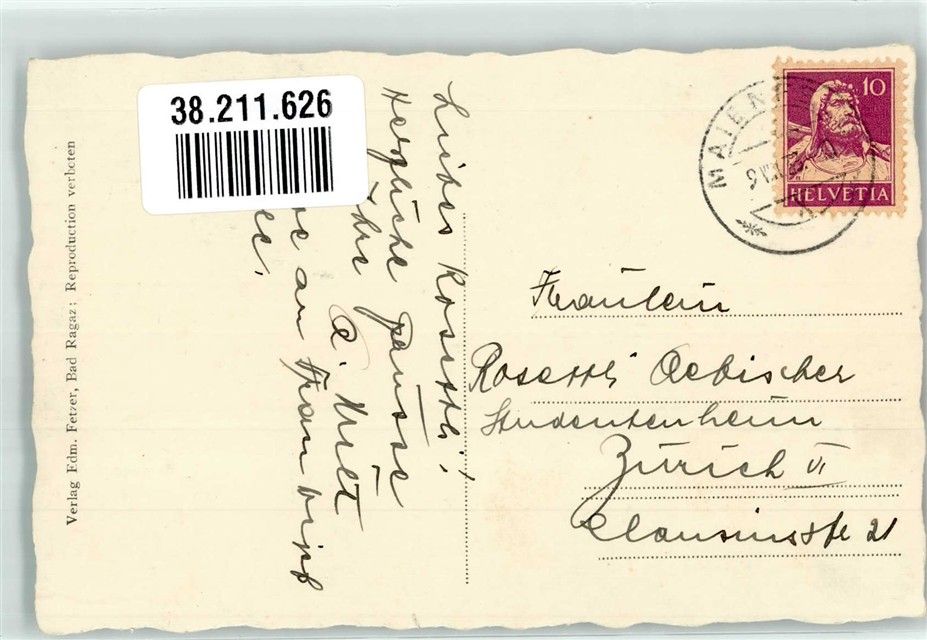 38.211.626
Verlag Edm. Fetzer, Bad Ragaz; Reproduction verboten
Liebes Rosettli!
Herzliche Grüsse
Ihre
an Frau
10
HELVETIA
MAIENF
Fräulein
Rosettli Aebischer
Studentenheim
Zürich VI
Clausiusstr 21